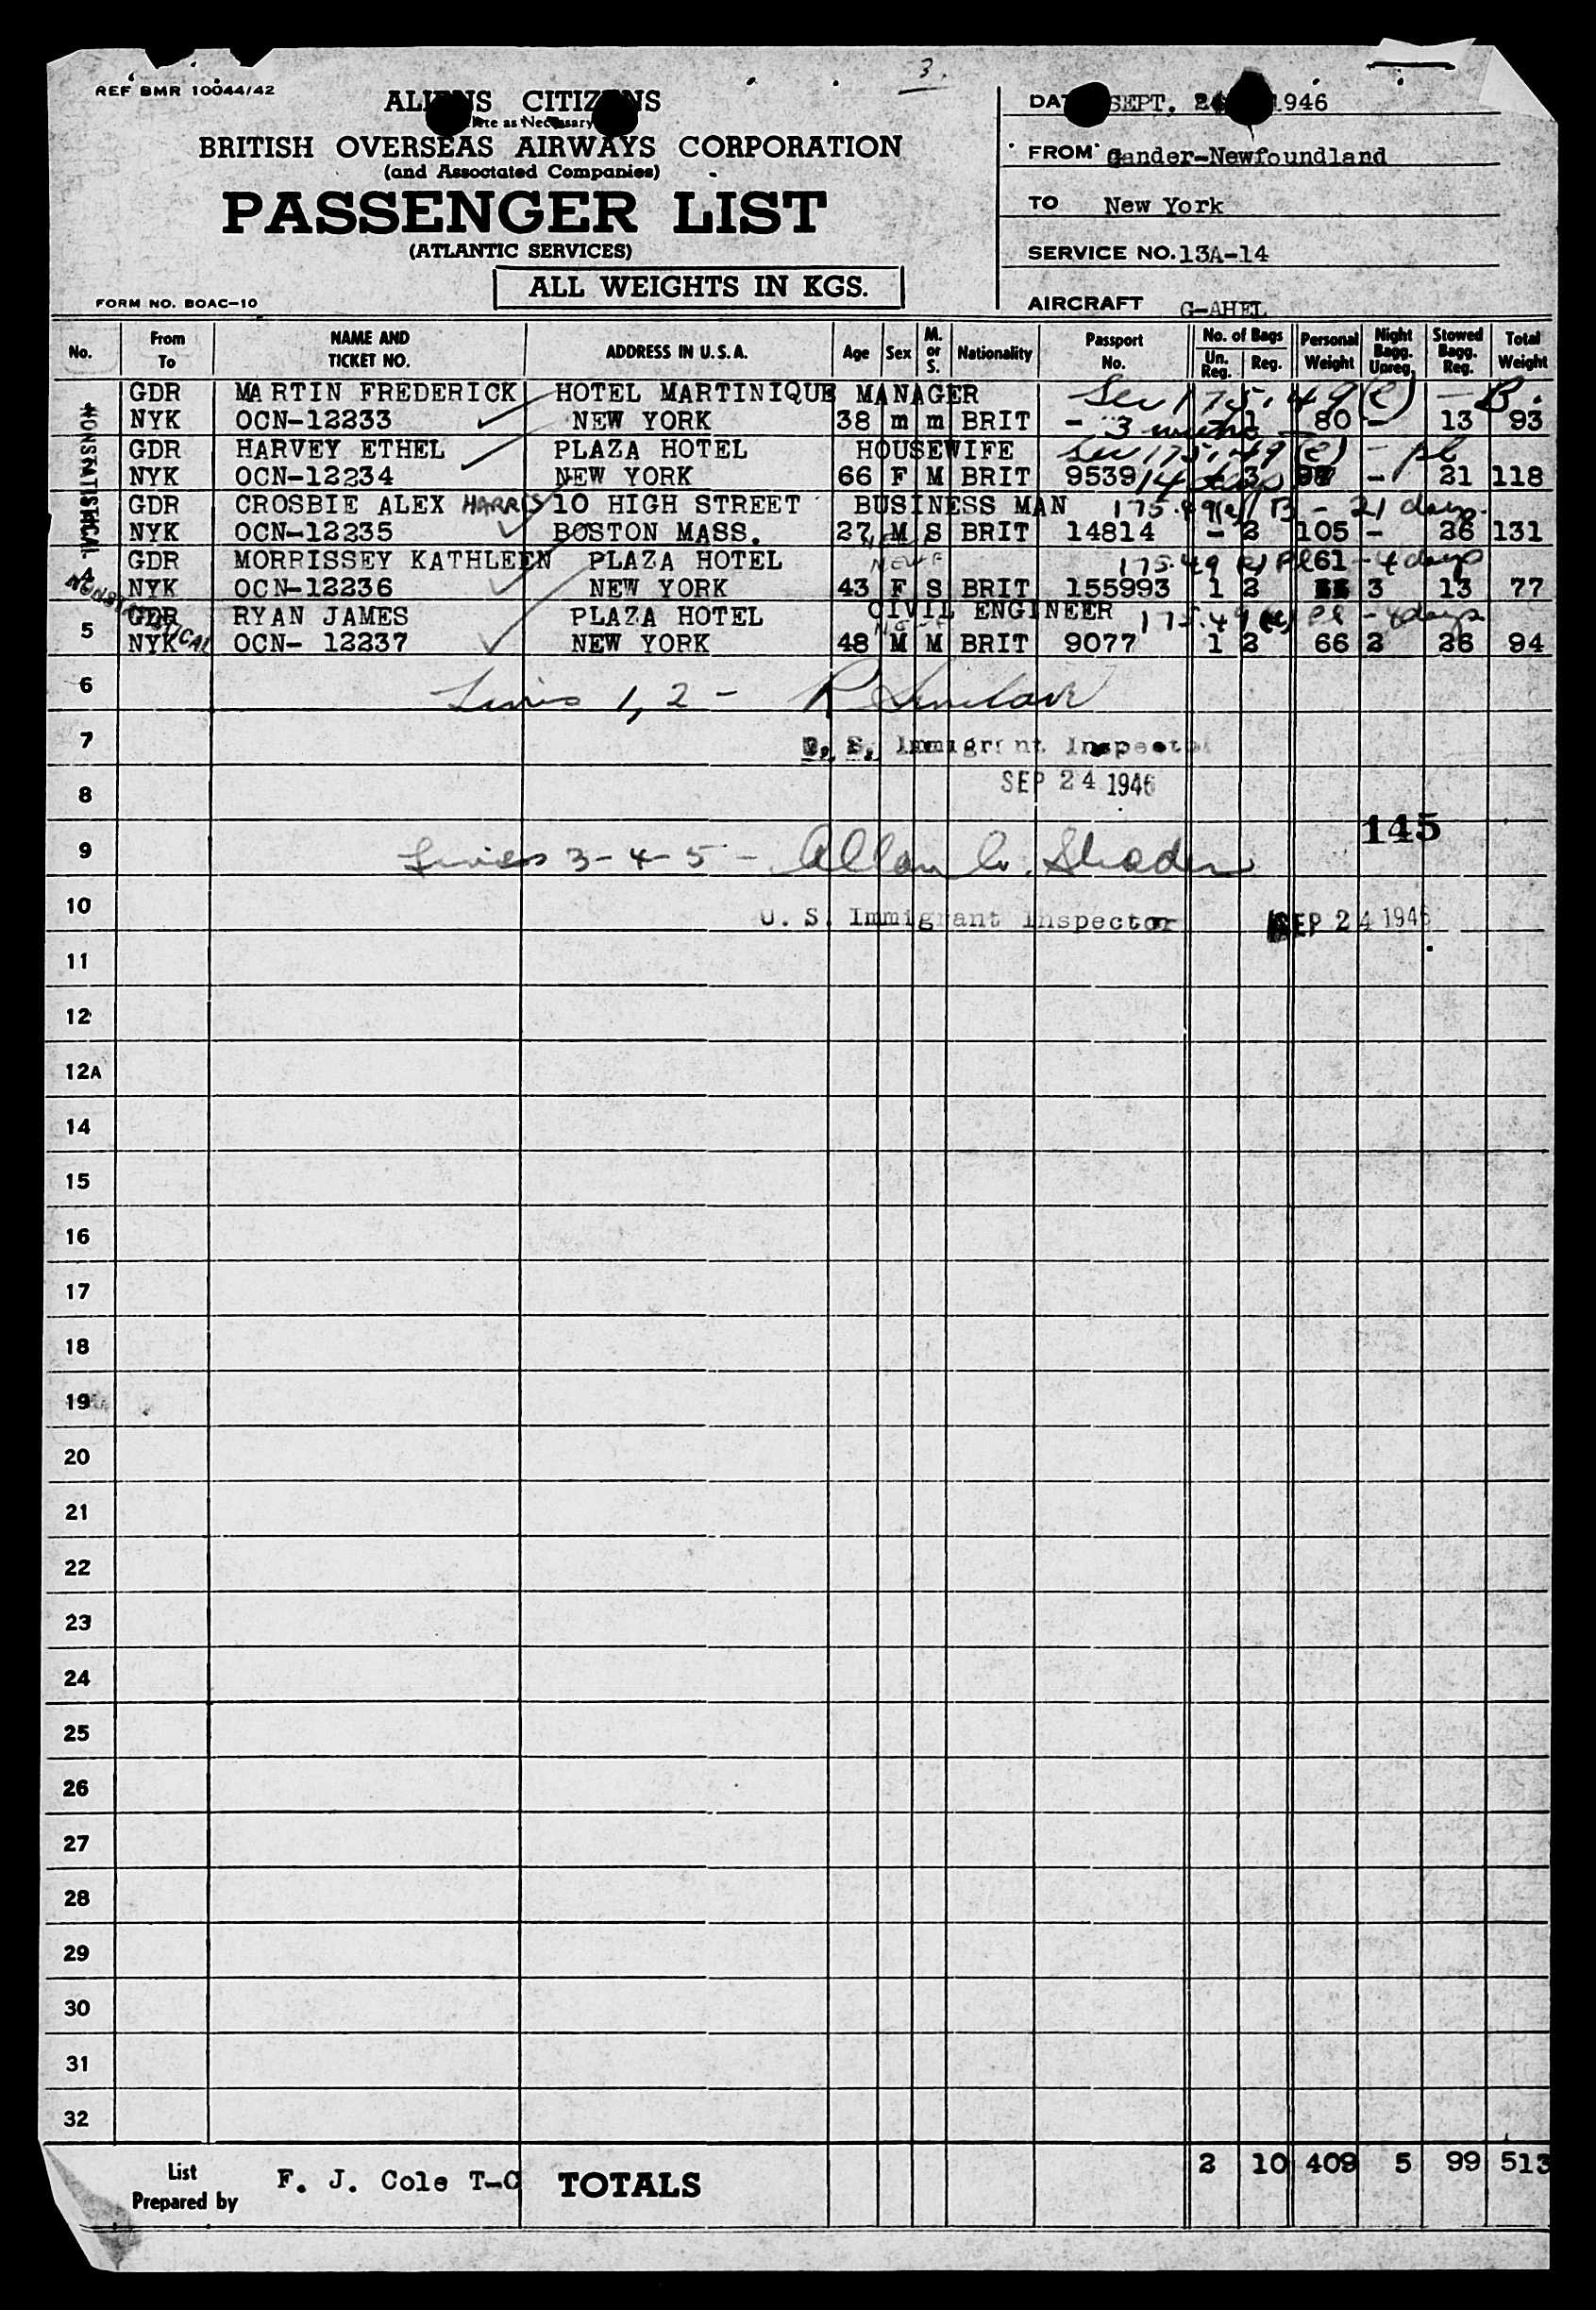 3.
REF BMR 10044/42
ALIENS CITIZENS
as Necessary
BRITISH OVERSEAS AIRWAYS CORPORATION
(and Associated Companies)
PASSENGER LIST
(ATLANTIC SERVICES)
ALL WEIGHTS IN KGS.
FORM NO. BOAC-10
SEPT. 1946
FROM Gander-Newfoundland
TO New York
SERVICE NO. 13A-14
AIRCRAFT G-AHEL
No. From To NAME AND TICKET NO. ADDRESS IN U.S.A. Age Sex M. or S. Nationality Passport No. No. of Bags Un. Reg. Reg. Personal Weight Night Bagg. Unreg. Stowed Bagg. Reg. Total Weight
NONSTATISTICAL
GDR MARTIN FREDERICK HOTEL MARTINIQUE MANAGER Sec 175.49(e) - B.
NYK OCN-12233 NEW YORK 38 m m BRIT - 3 months 1 80 - 13 93
GDR HARVEY ETHEL PLAZA HOTEL HOUSEWIFE Sec 175.49(e) - pl
NYK OCN-12234 NEW YORK 66 F M BRIT 9539 14 days 3 - 21 118
GDR CROSBIE ALEX HARRIS 10 HIGH STREET BUSINESS MAN 175.49(e) B - 21 days.
NYK OCN-12235 BOSTON MASS. 27 M S BRIT 14814 - 2 105 - 26 131
4 GDR MORRISSEY KATHLEEN PLAZA HOTEL NEWF 175.49 Pl 61 - 4 days
NYK OCN-12236 NEW YORK 43 F S BRIT 155993 1 2 3 13 77
NONSTATISTICAL
5 GDR RYAN JAMES PLAZA HOTEL CIVIL ENGINEER 175.49(e) Pl - 4 days
NYK OCN- 12237 NEW YORK 48 M M BRIT 9077 1 2 66 2 26 94
6 Lines 1, 2 - R Sinclair
7 U. S. Immigrant Inspector
8 SEP 24 1946
145
9 Lines 3-4-5 - Allan
10 U. S. Immigrant Inspector SEP 24 1946
11
12
12A
14
15
16
17
18
19
20
21
22
23
24
25
26
27
28
29
30
31
32
List Prepared by F. J. Cole T-O TOTALS 2 10 409 5 99 513